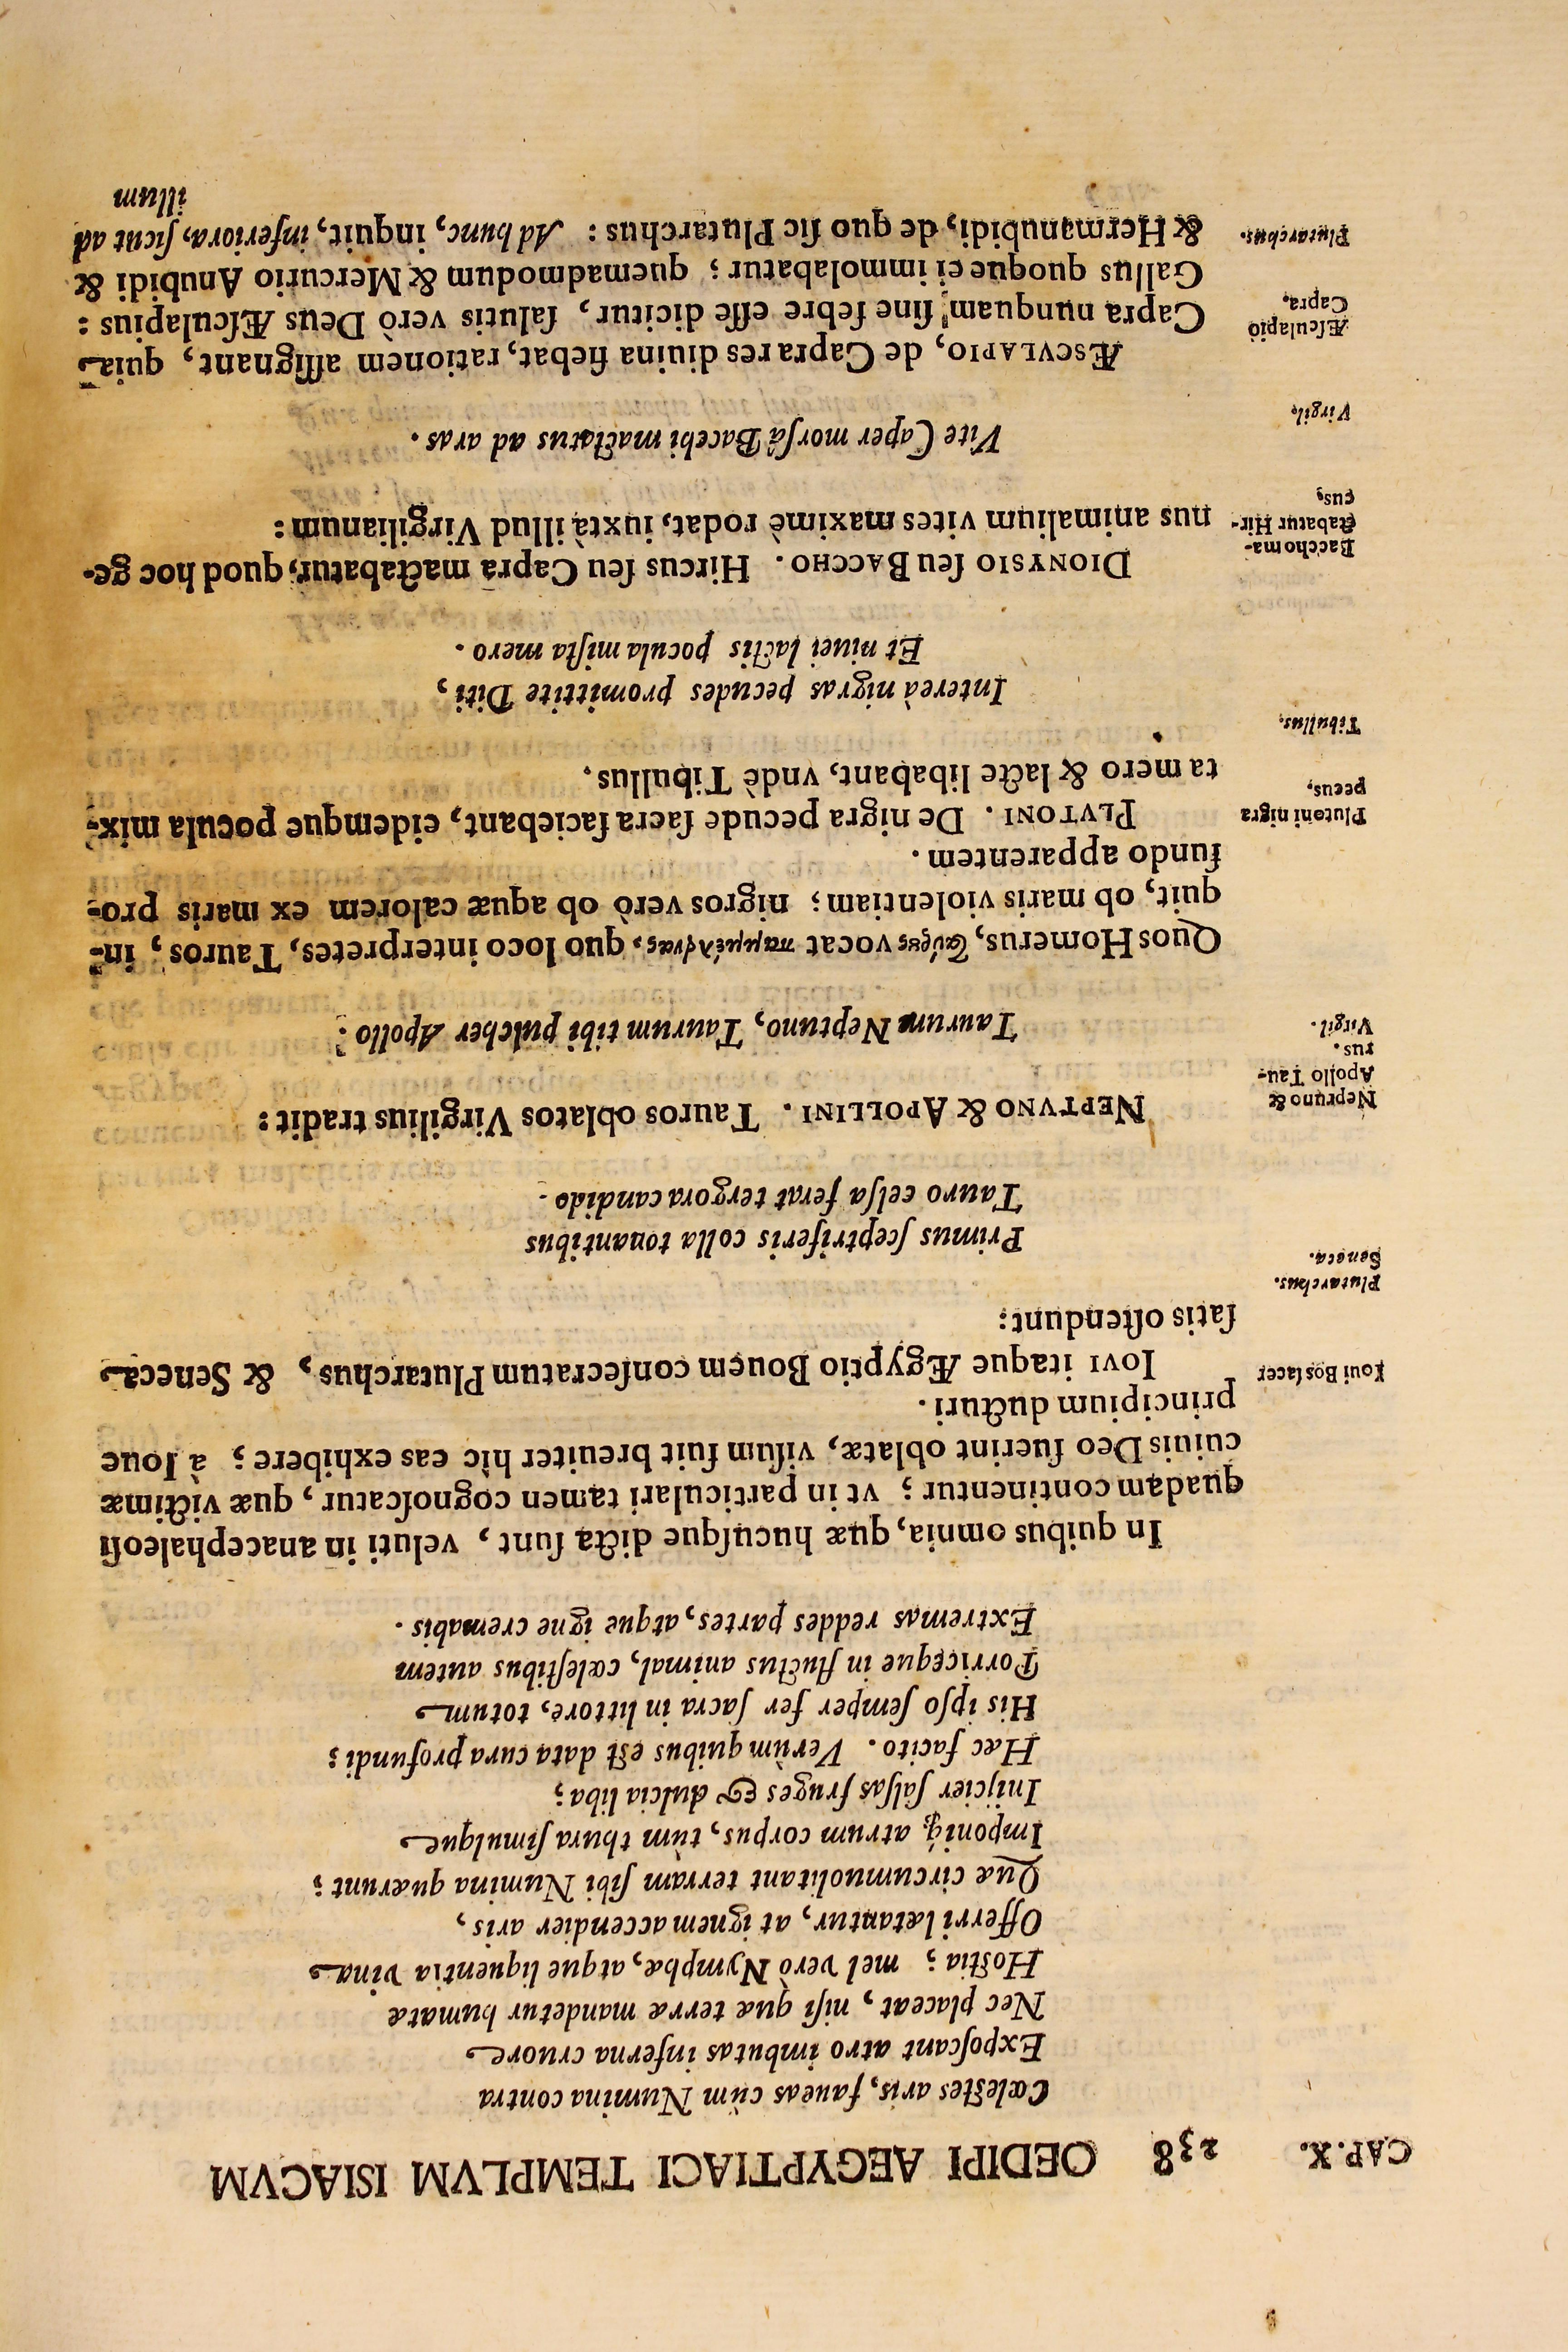 CAP. X. 238 OEDIPI AEGYPTIACI TEMPLVM ISIACVM
Cœleſtes aris, faueas cùm Numina contra
Expoſcant atro imbutas inferna cruore
Nec placeat, niſi quæ terræ mandetur humatæ
Hoſtia; mel verò Nymphæ, atque liquentia vina
Offerri lætantur, at ignem accendier aris,
Quæ circumuolitant terram ſibi Numina quærunt;
Imponiq́; atrum corpus, tùm thura ſimulque
Inijcier ſalſas fruges & dulcia liba;
Hæc facito. Verùm quibus eſt data cura profundi;
His ipſo ſemper fer ſacra in littore, totum
Porriceque in fluctus animal, cœleſtibus autem
Extremas reddes partes, atque igne cremabis.
In quibus omnia, quæ hucuſque dicta ſunt, veluti in anacephaleoſi
quadam continentur; vt in particulari tamen cognoſcatur, quæ victimæ
cuiuis Deo fuerint oblatæ, viſum fuit breuiter hìc eas exhibere; à Ioue
principium ducturi.
Ioui Bos ſacer
IOVI itaque Ægyptio Bouem conſecratum Plutarchus, & Seneca
ſatis oſtendunt:
Plutarchus.
Seneca.
Primus ſceptriferis colla tonantibus
Tauro celſa ferat tergora candido.
Neptuno &
Apollo Tau-
rus.
Virgil.
NEPTVNO & APOLLINI. Tauros oblatos Virgilius tradit:
Taurum Neptuno, Taurum tibi pulcher Apollo;
Quos Homerus, ταύρȣς vocat παμμέλανας, quo loco interpretes, Tauros, in-
quit, ob maris violentiam; nigros verò ob aquæ calorem ex maris pro-
fundo apparentem.
Plutoni nigra
pecus,
PLVTONI. De nigra pecude ſacra faciebant, eidemque pocula mix-
ta mero & lacte libabant, vndè Tibullus.
Tibullus.
Intereà nigras pecudes promittite Diti,
Et niuei lactis pocula miſta mero.
Baccho ma-
ctabatur Hir-
cus,
DIONYSIO ſeu BACCHO. Hircus ſeu Capra mactabatur, quod hoc ge-
nus animalium vites maximè rodat, iuxtà illud Virgilianum:
Virgil.
Vite Caper morſâ Bacchi mactatus ad aras.
Æſculapio
Capra,
ÆSCVLAPIO, de Capra res diuina fiebat, rationem aſſignant, quia
Capra nunquam ſine febre eſſe dicitur, ſalutis verò Deus Æſculapius:
Gallus quoque ei immolabatur; quemadmodum & Mercurio Anubidi &
Plutarchus.
& Hermanubidi, de quo ſic Plutarchus: Ad hunc, inquit, inferiora, ſicut ad
illum